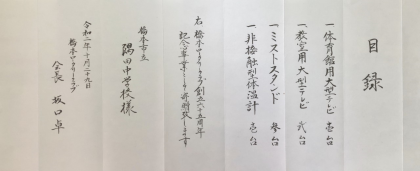 目録
一、体育館用大型テレビ 壱台
一、教室用大型テレビ 弐台
一、ミストスタンド 参台
一、非接触型体温計 壱台
右 橋本ロータリークラブ創立六十五周年
記念事業として寄贈致します
橋本市立
隅田中学校様
令和二年十月二十九日
橋本ロータリークラブ
会長 坂口卓